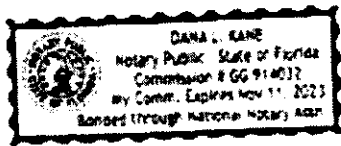 DANA L. KANE
Notary Public - State of Florida
Commission # GG 914032
My Comm. Expires Nov 11, 2023
Bonded through National Notary Assn.